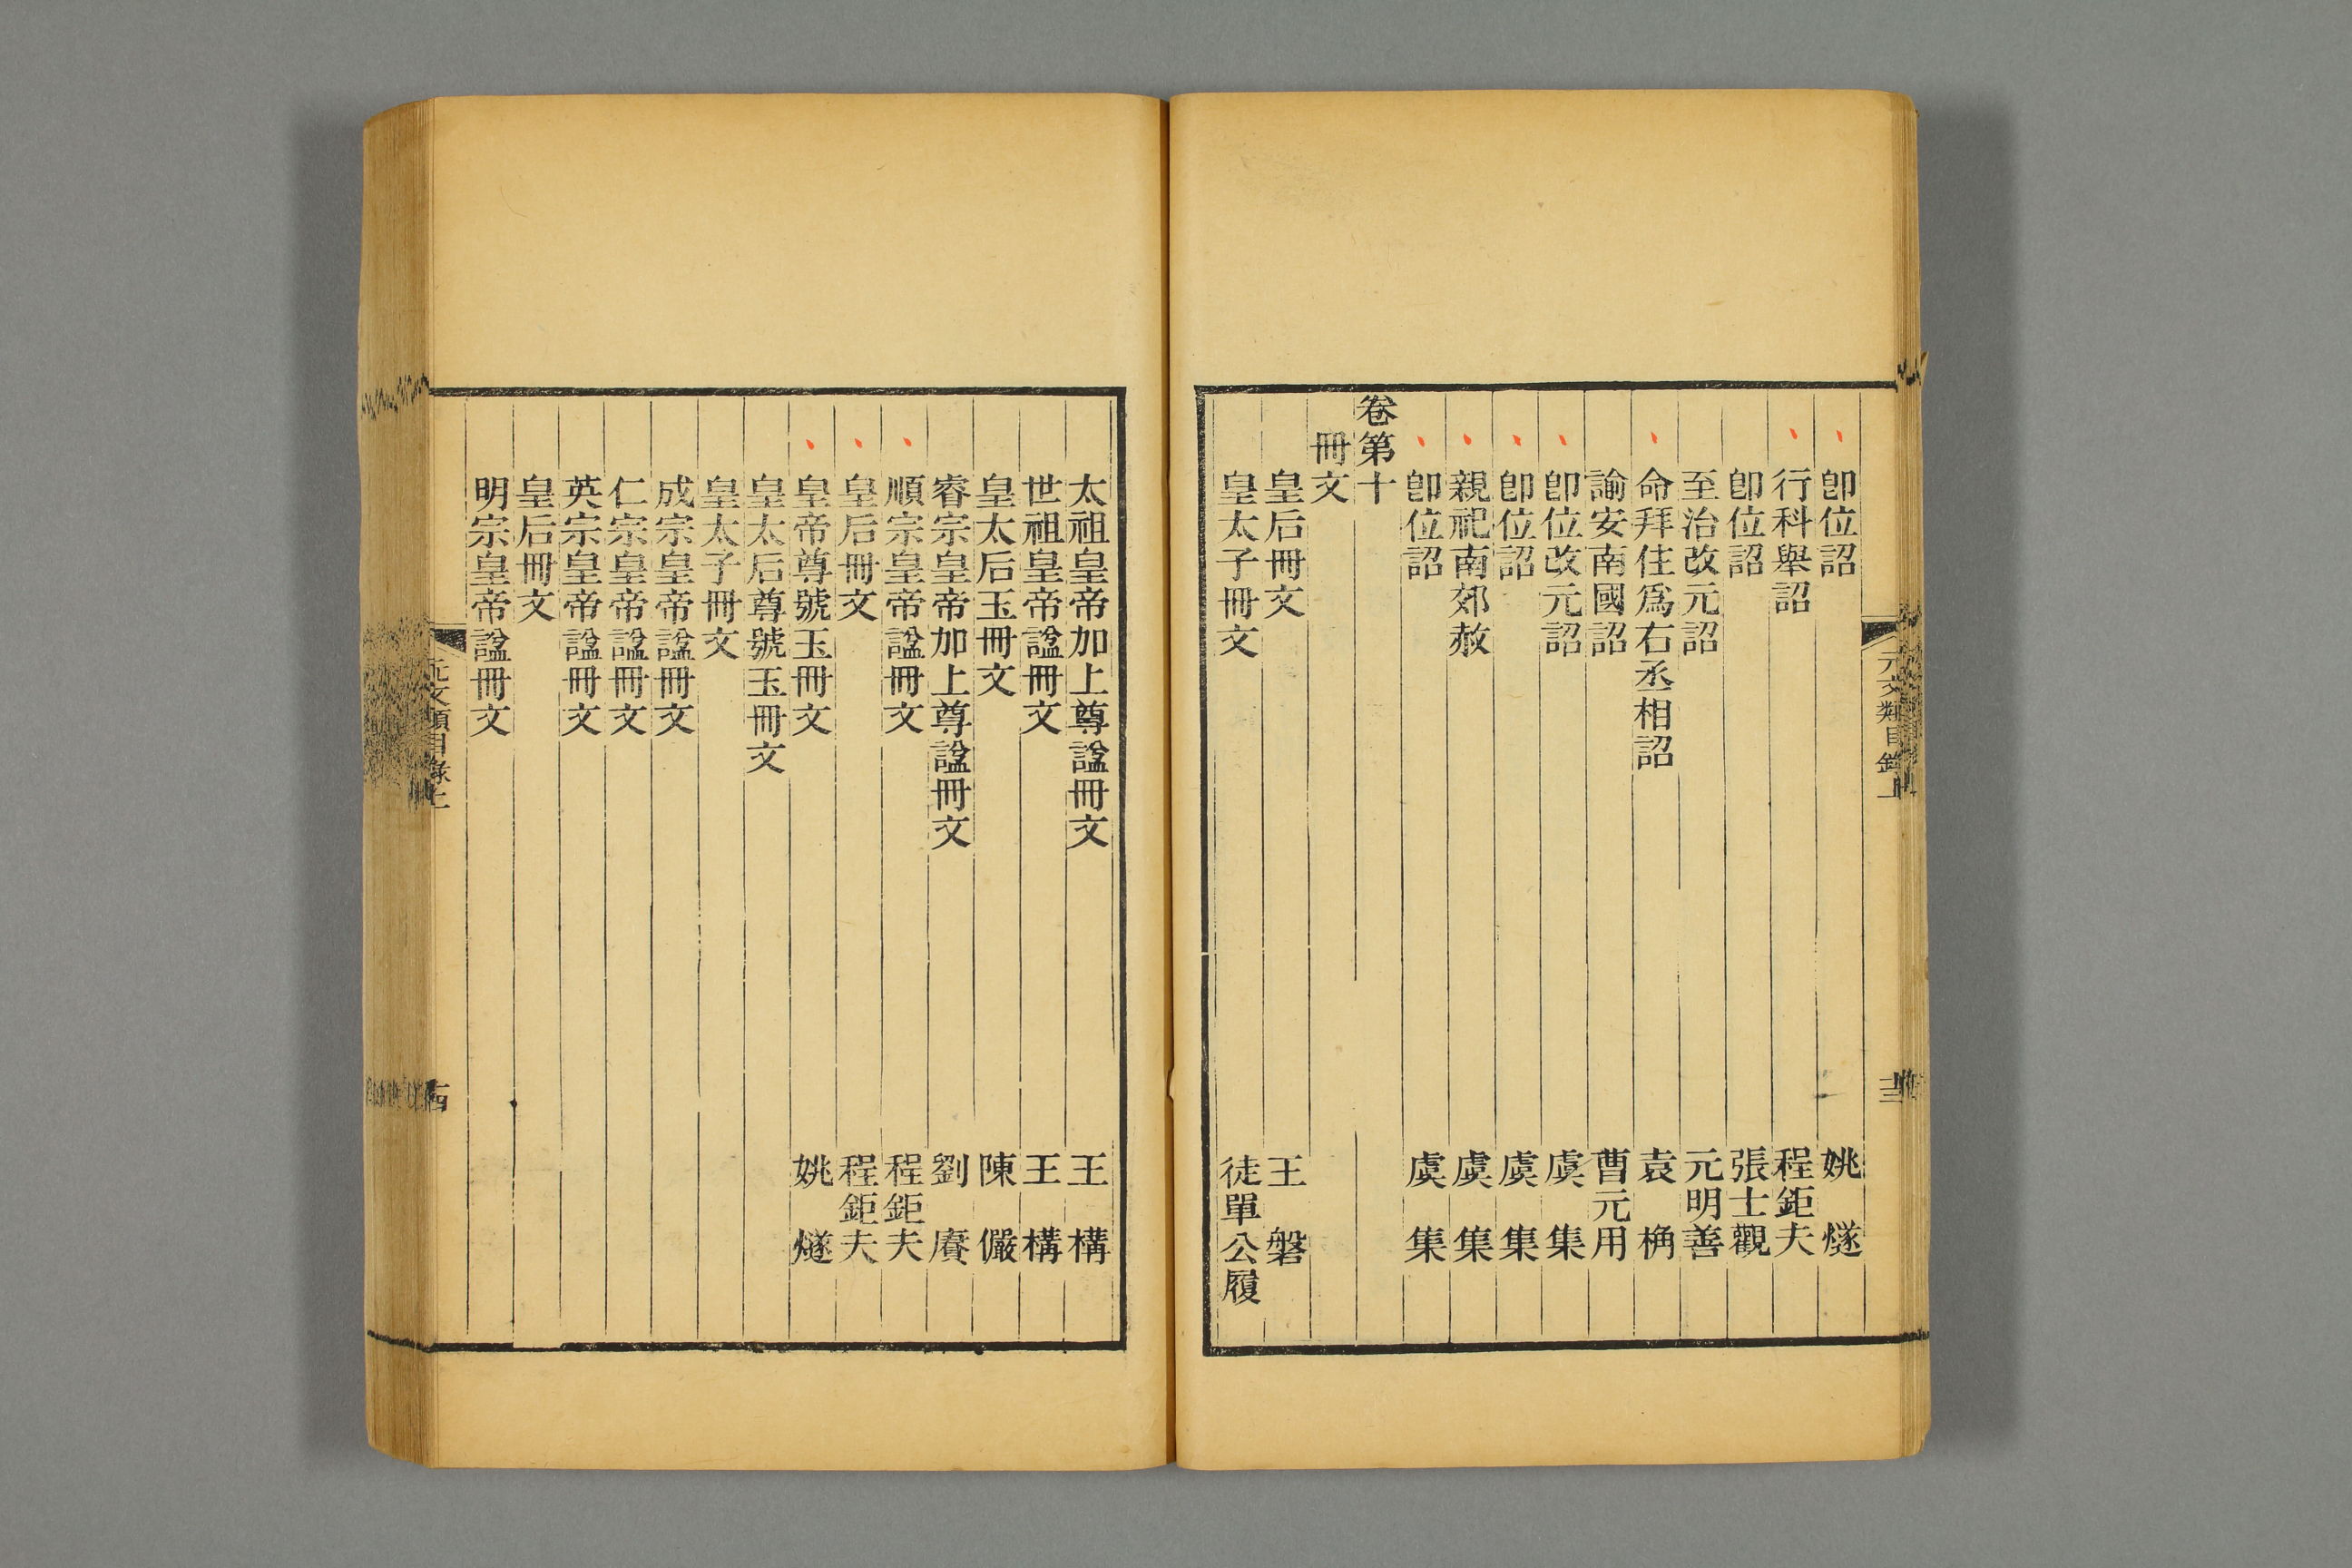 卽位詔　姚　燧
行科舉詔　程鉅夫
卽位詔　張士觀
至治改元詔　元明善
命拜住爲右丞相詔　袁　桷
諭安南國詔　曹元用
卽位改元詔　虞　集
卽位詔　虞　集
親祀南郊赦　虞　集
卽位詔　虞　集
卷第十
冊文
皇后冊文　王　磐
皇太子冊文　徒單公履
元文類目錄上
太祖皇帝加上尊諡冊文　王　構
世祖皇帝諡冊文　王　構
皇太后玉冊文　陳　儼
睿宗皇帝加上尊諡冊文　劉　賡
順宗皇帝諡冊文　程鉅夫
皇后冊文　程鉅夫
皇帝尊號玉冊文　姚　燧
皇太后尊號玉冊文
皇太子冊文
成宗皇帝諡冊文
仁宗皇帝諡冊文
英宗皇帝諡冊文
皇后冊文
明宗皇帝諡冊文
元文類目錄上